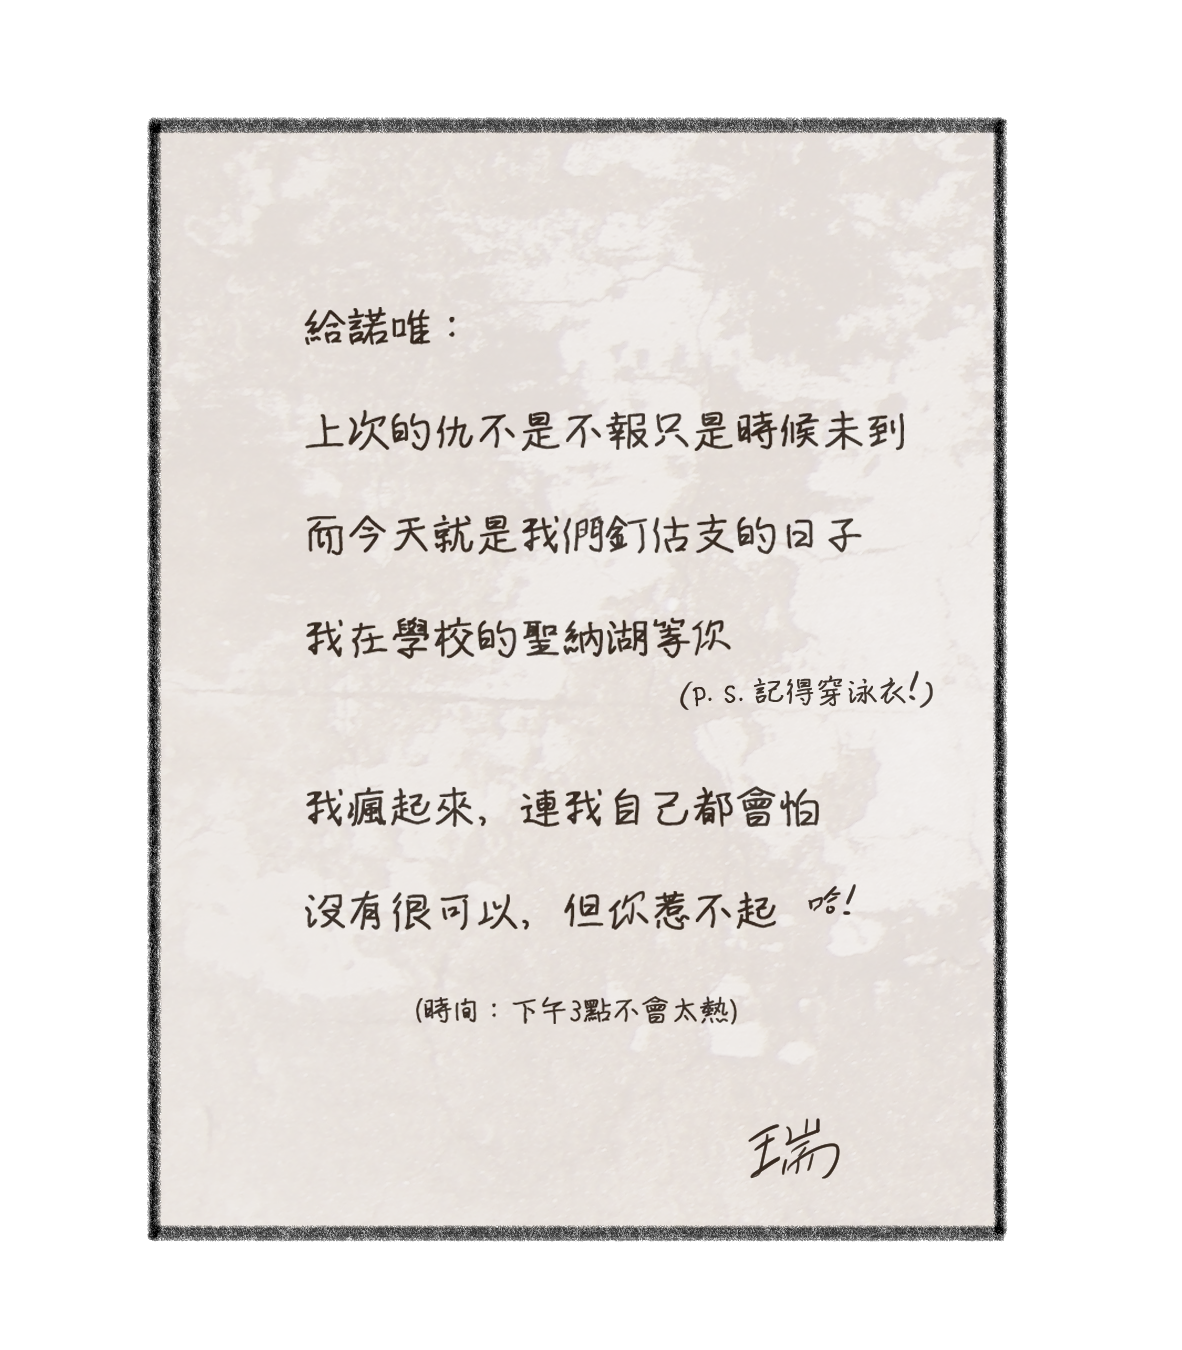 給諾唯：
上次的仇不是不報只是時候未到
而今天就是我們釘估支的日子
我在學校的聖納湖等你
(p. s. 記得穿泳衣!)
我瘋起來，連我自己都會怕
沒有很可以，但你惹不起 哈!
(時间：下午3點不會太熱)
瑞